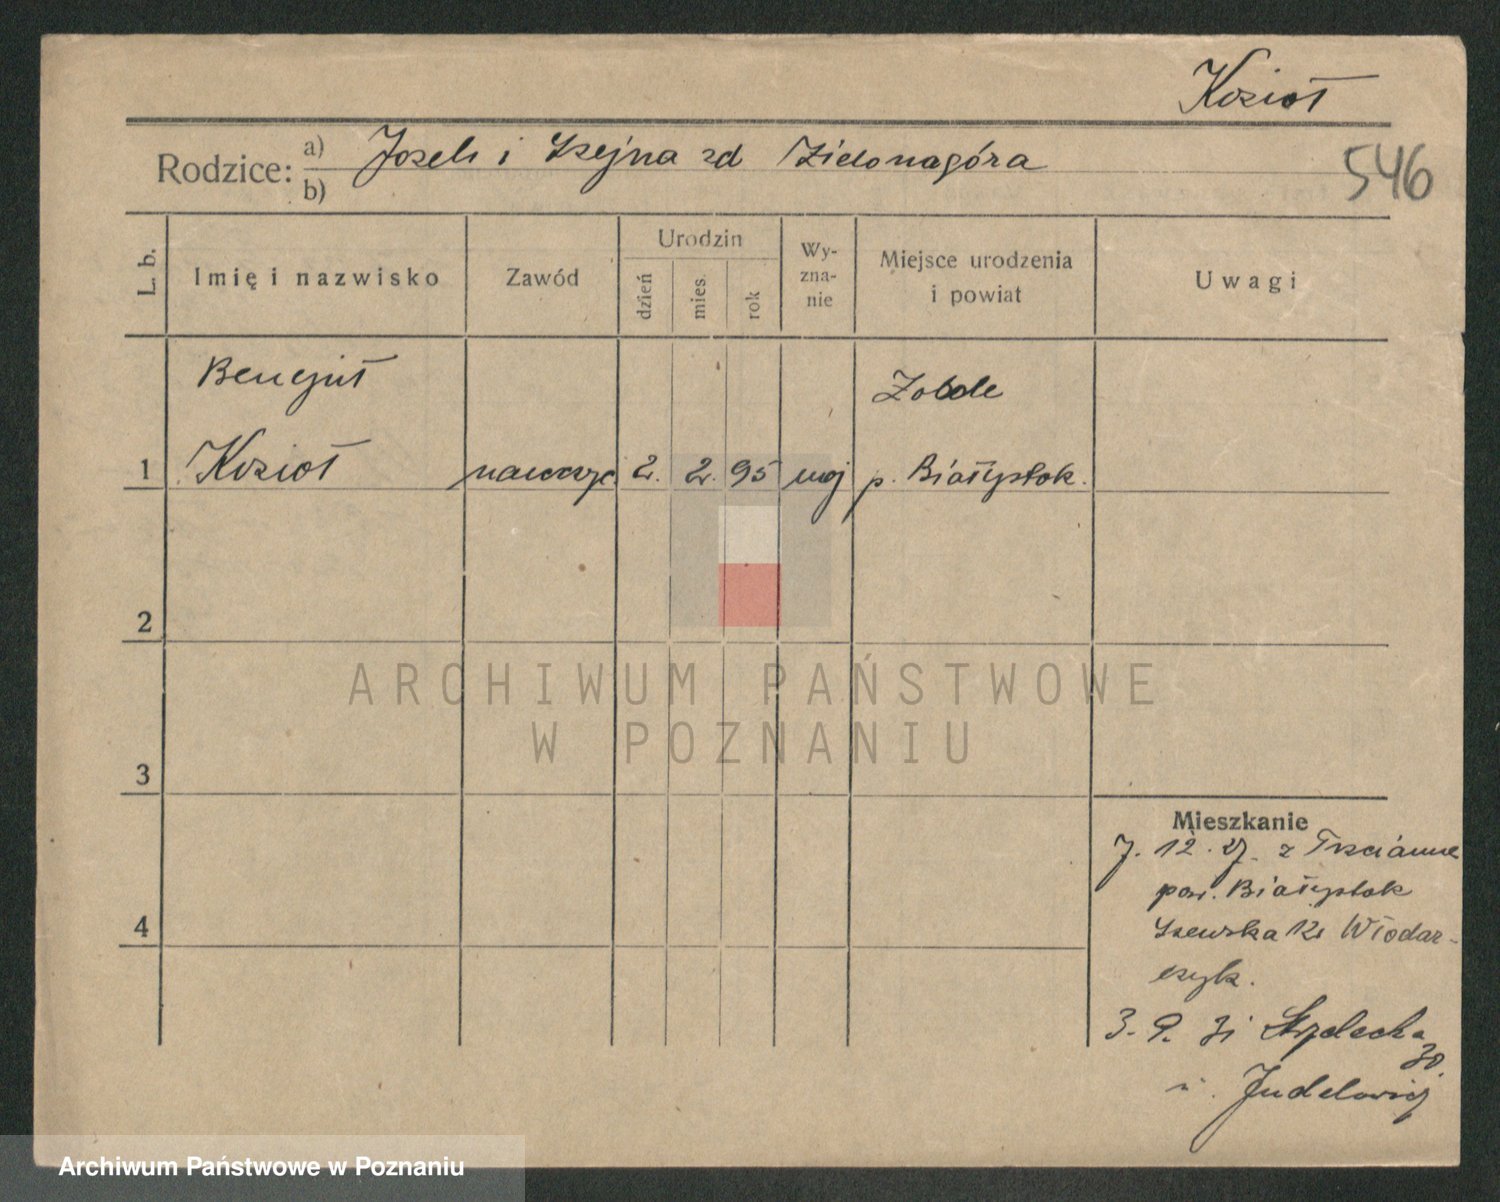 Kozioł
Rodzice: a) Joseh i Szejna zd Zielonagóra
b)
546
L. b.
Imię i nazwisko
Zawód
Urodzin
dzień
mies.
rok
Wy-
zna-
nie
Miejsce urodzenia
i powiat
Uwagi
Bencjuł
Kozioł
1
2. 2. 95 moj
Zobole
p. Białystok.
2
3
4
Mieszkanie
7. 12. 27. z Trzcianne
pow. Białystok
Szewska 12 Włodar-
czyk.
3. 9. 31
30.
u. Judelowicz
ARCHIWUM PAŃSTWOWE
W POZNANIU
Archiwum Państwowe w Poznaniu